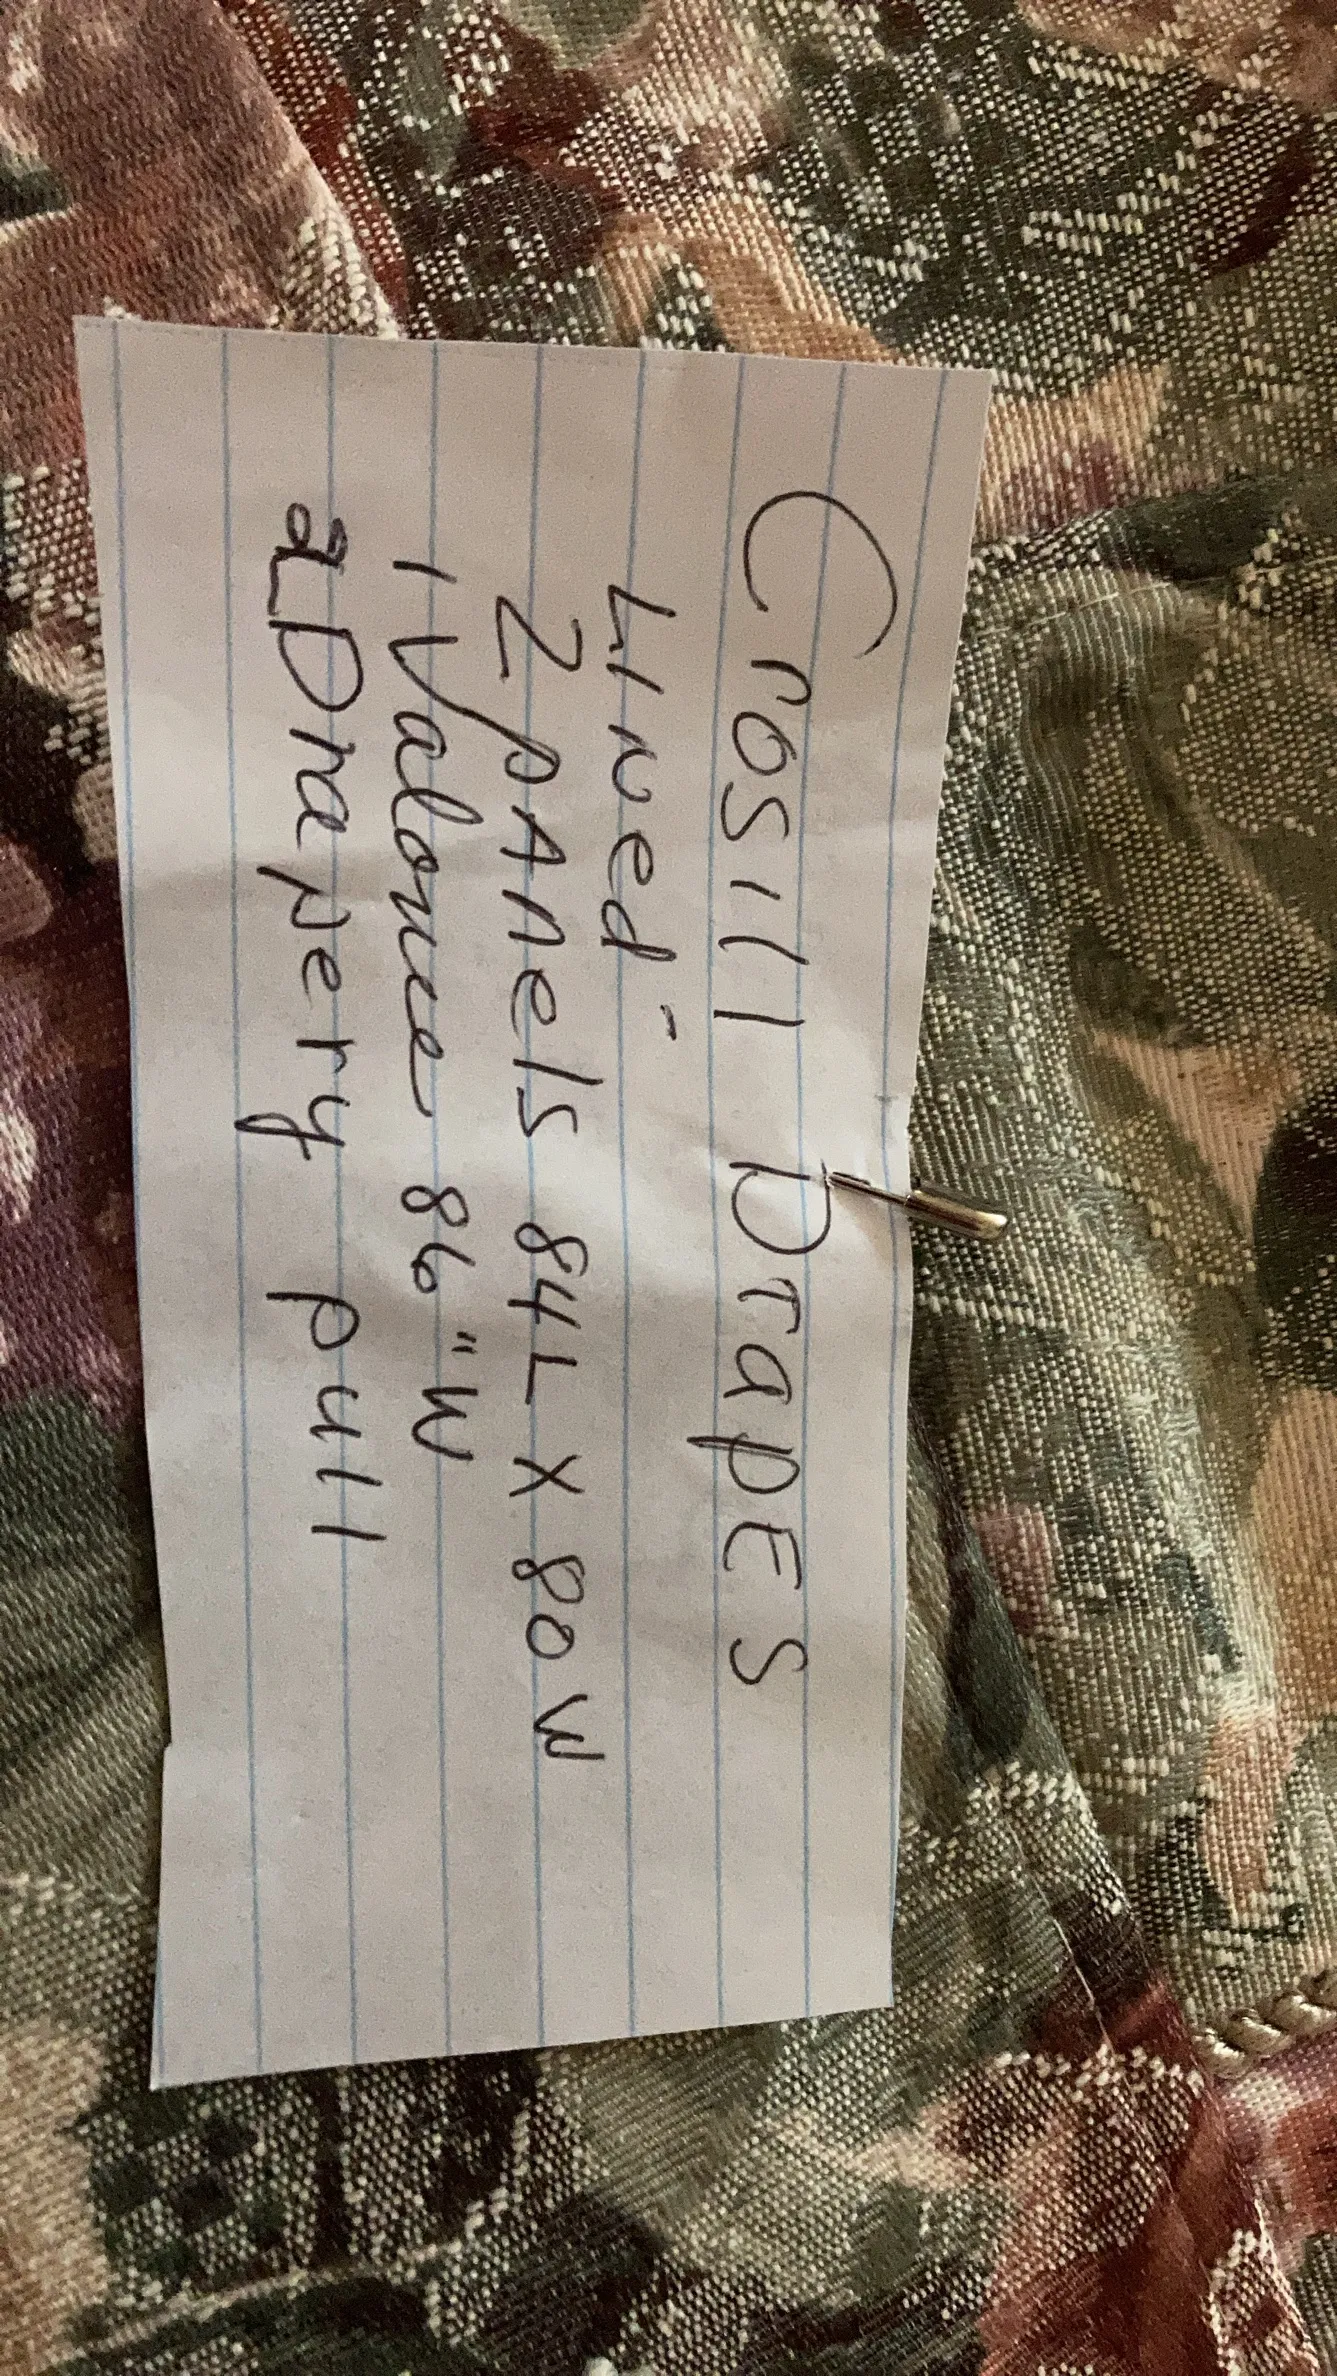 Crosill DrapES
Lined -
2 pANels 84L X 80W
1 Valonce 86"W
2 Drapery pull